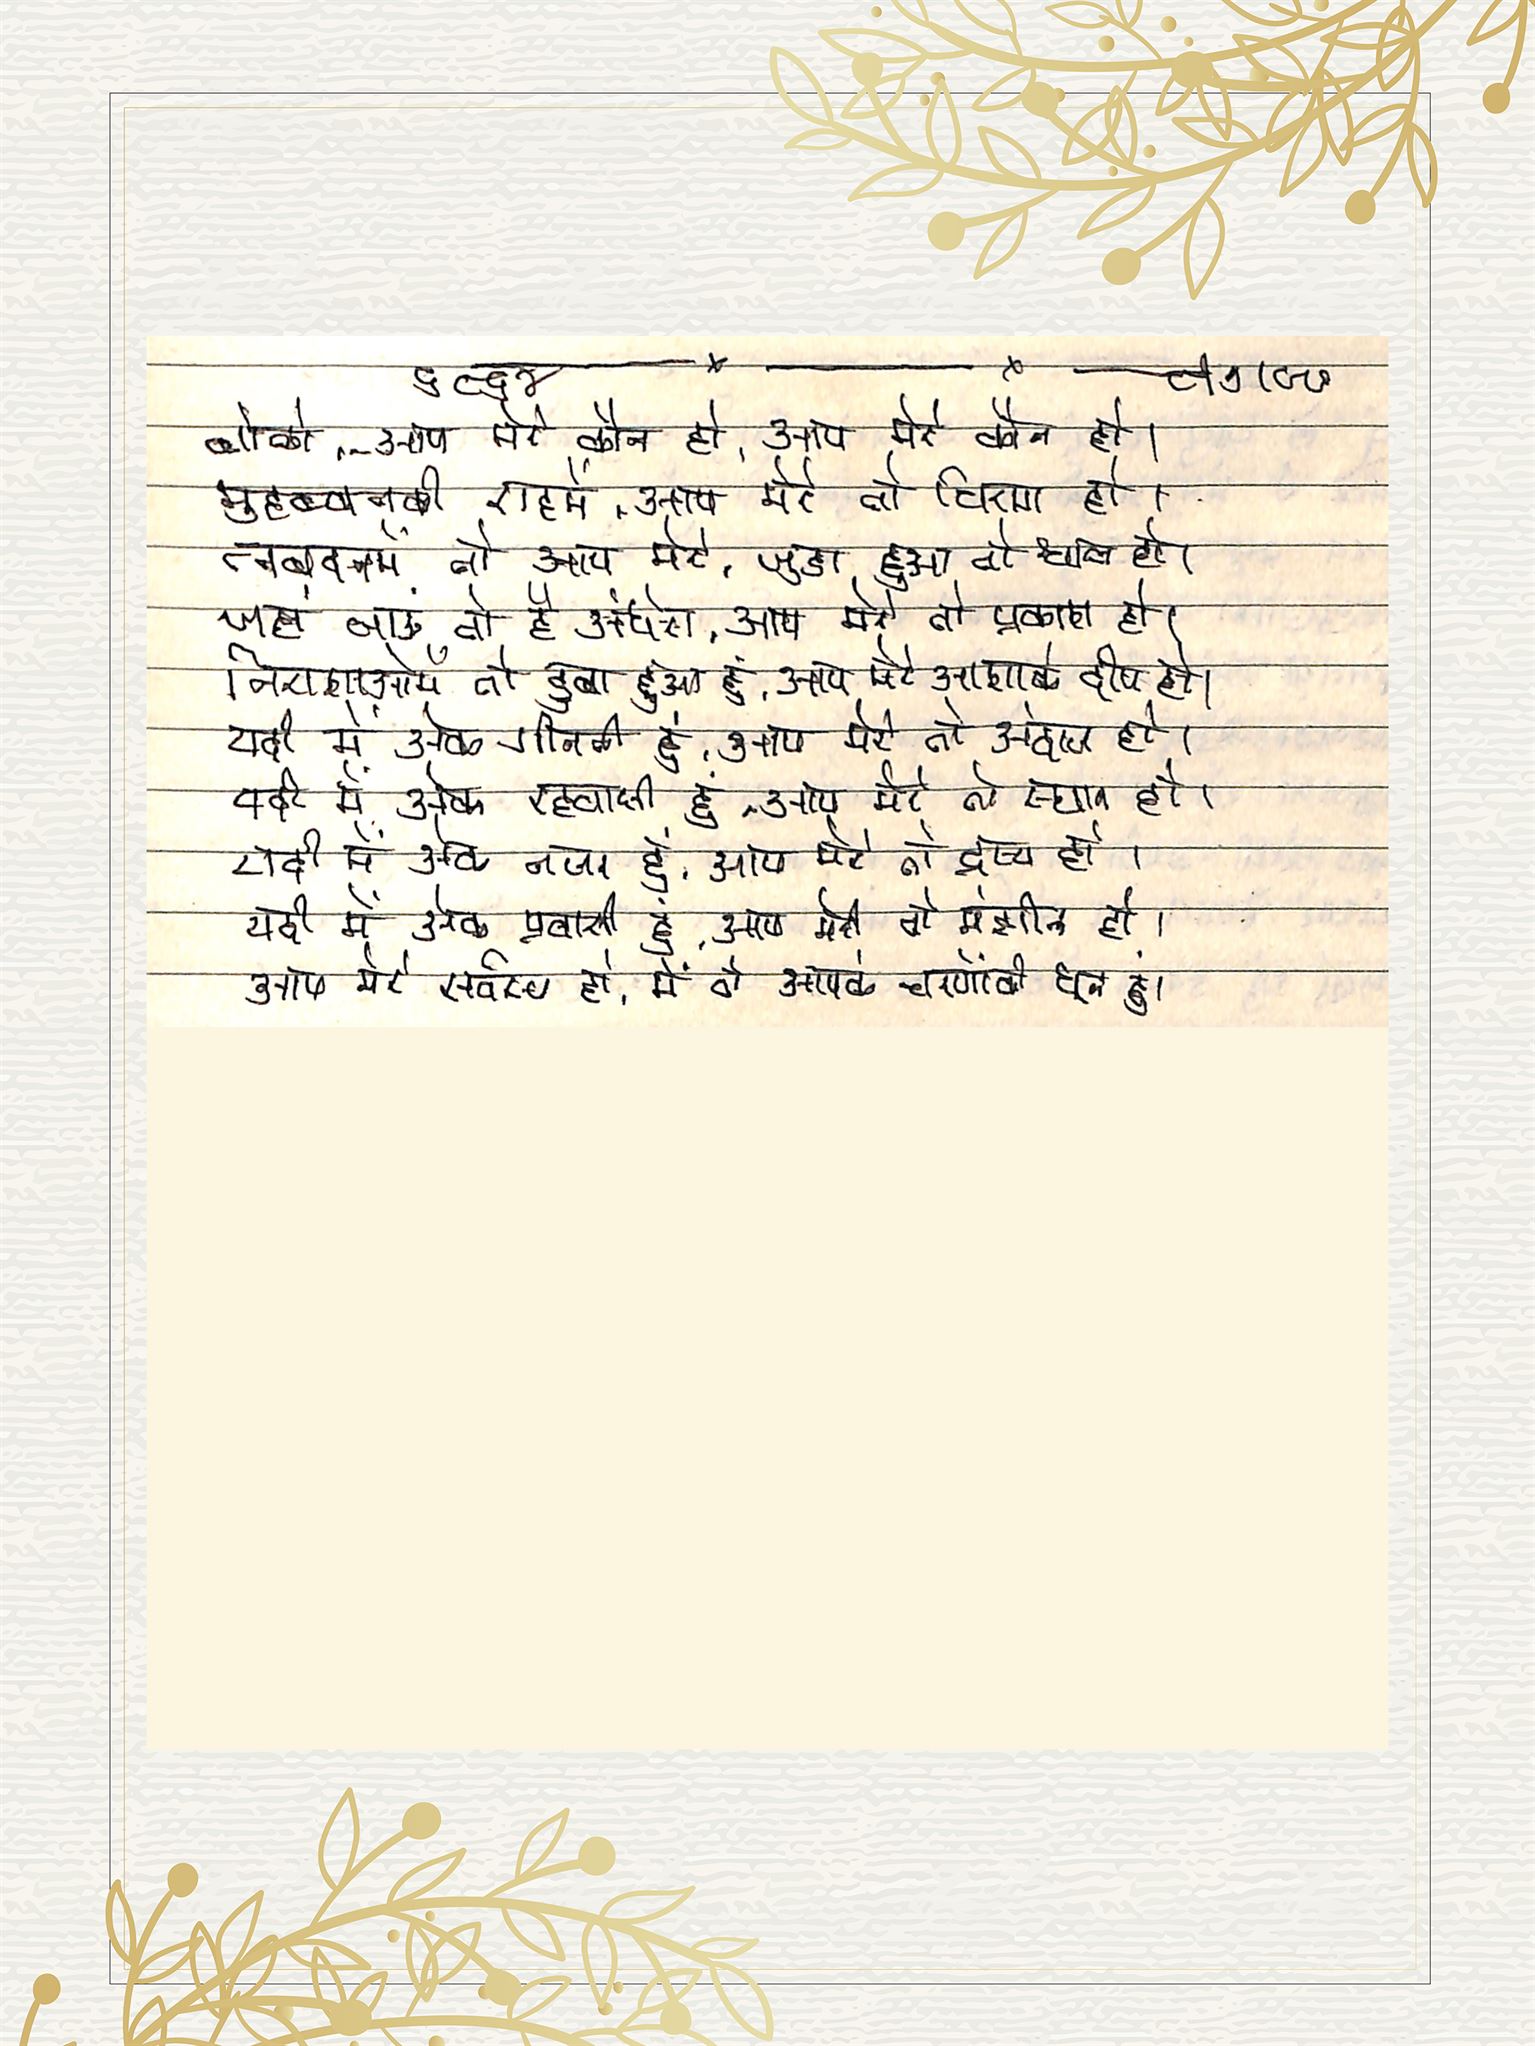 बोलो, आप मेरे कौन हो, आप मेरे कौन हो।
मुहब्बतकी राहमें, आप मेरे तो चिराग हो।
में तो आप मेरे, जुडा हुआ तो हो।
जहां जाऊं तो है अंधेरा, आप मेरे तो प्रकाश हो।
निराशाओमें तो डुबा हुआ हुं, आप मेरे आशाके दीप हो।
यदी में अेक हुं, आप मेरे तो अंदाज हो।
यदी में अेक रहवासी हुं, आप मेरे तो स्थान हो।
यदी में अेक नजर हुं, आप मेरे तो द्रष्य हो।
यदी में अेक प्रवासी हुं, आप मेरी तो मंझील हो।
आप मेरे सर्वस्व हो, में तो आपके चरणोंकी धूल हुं।